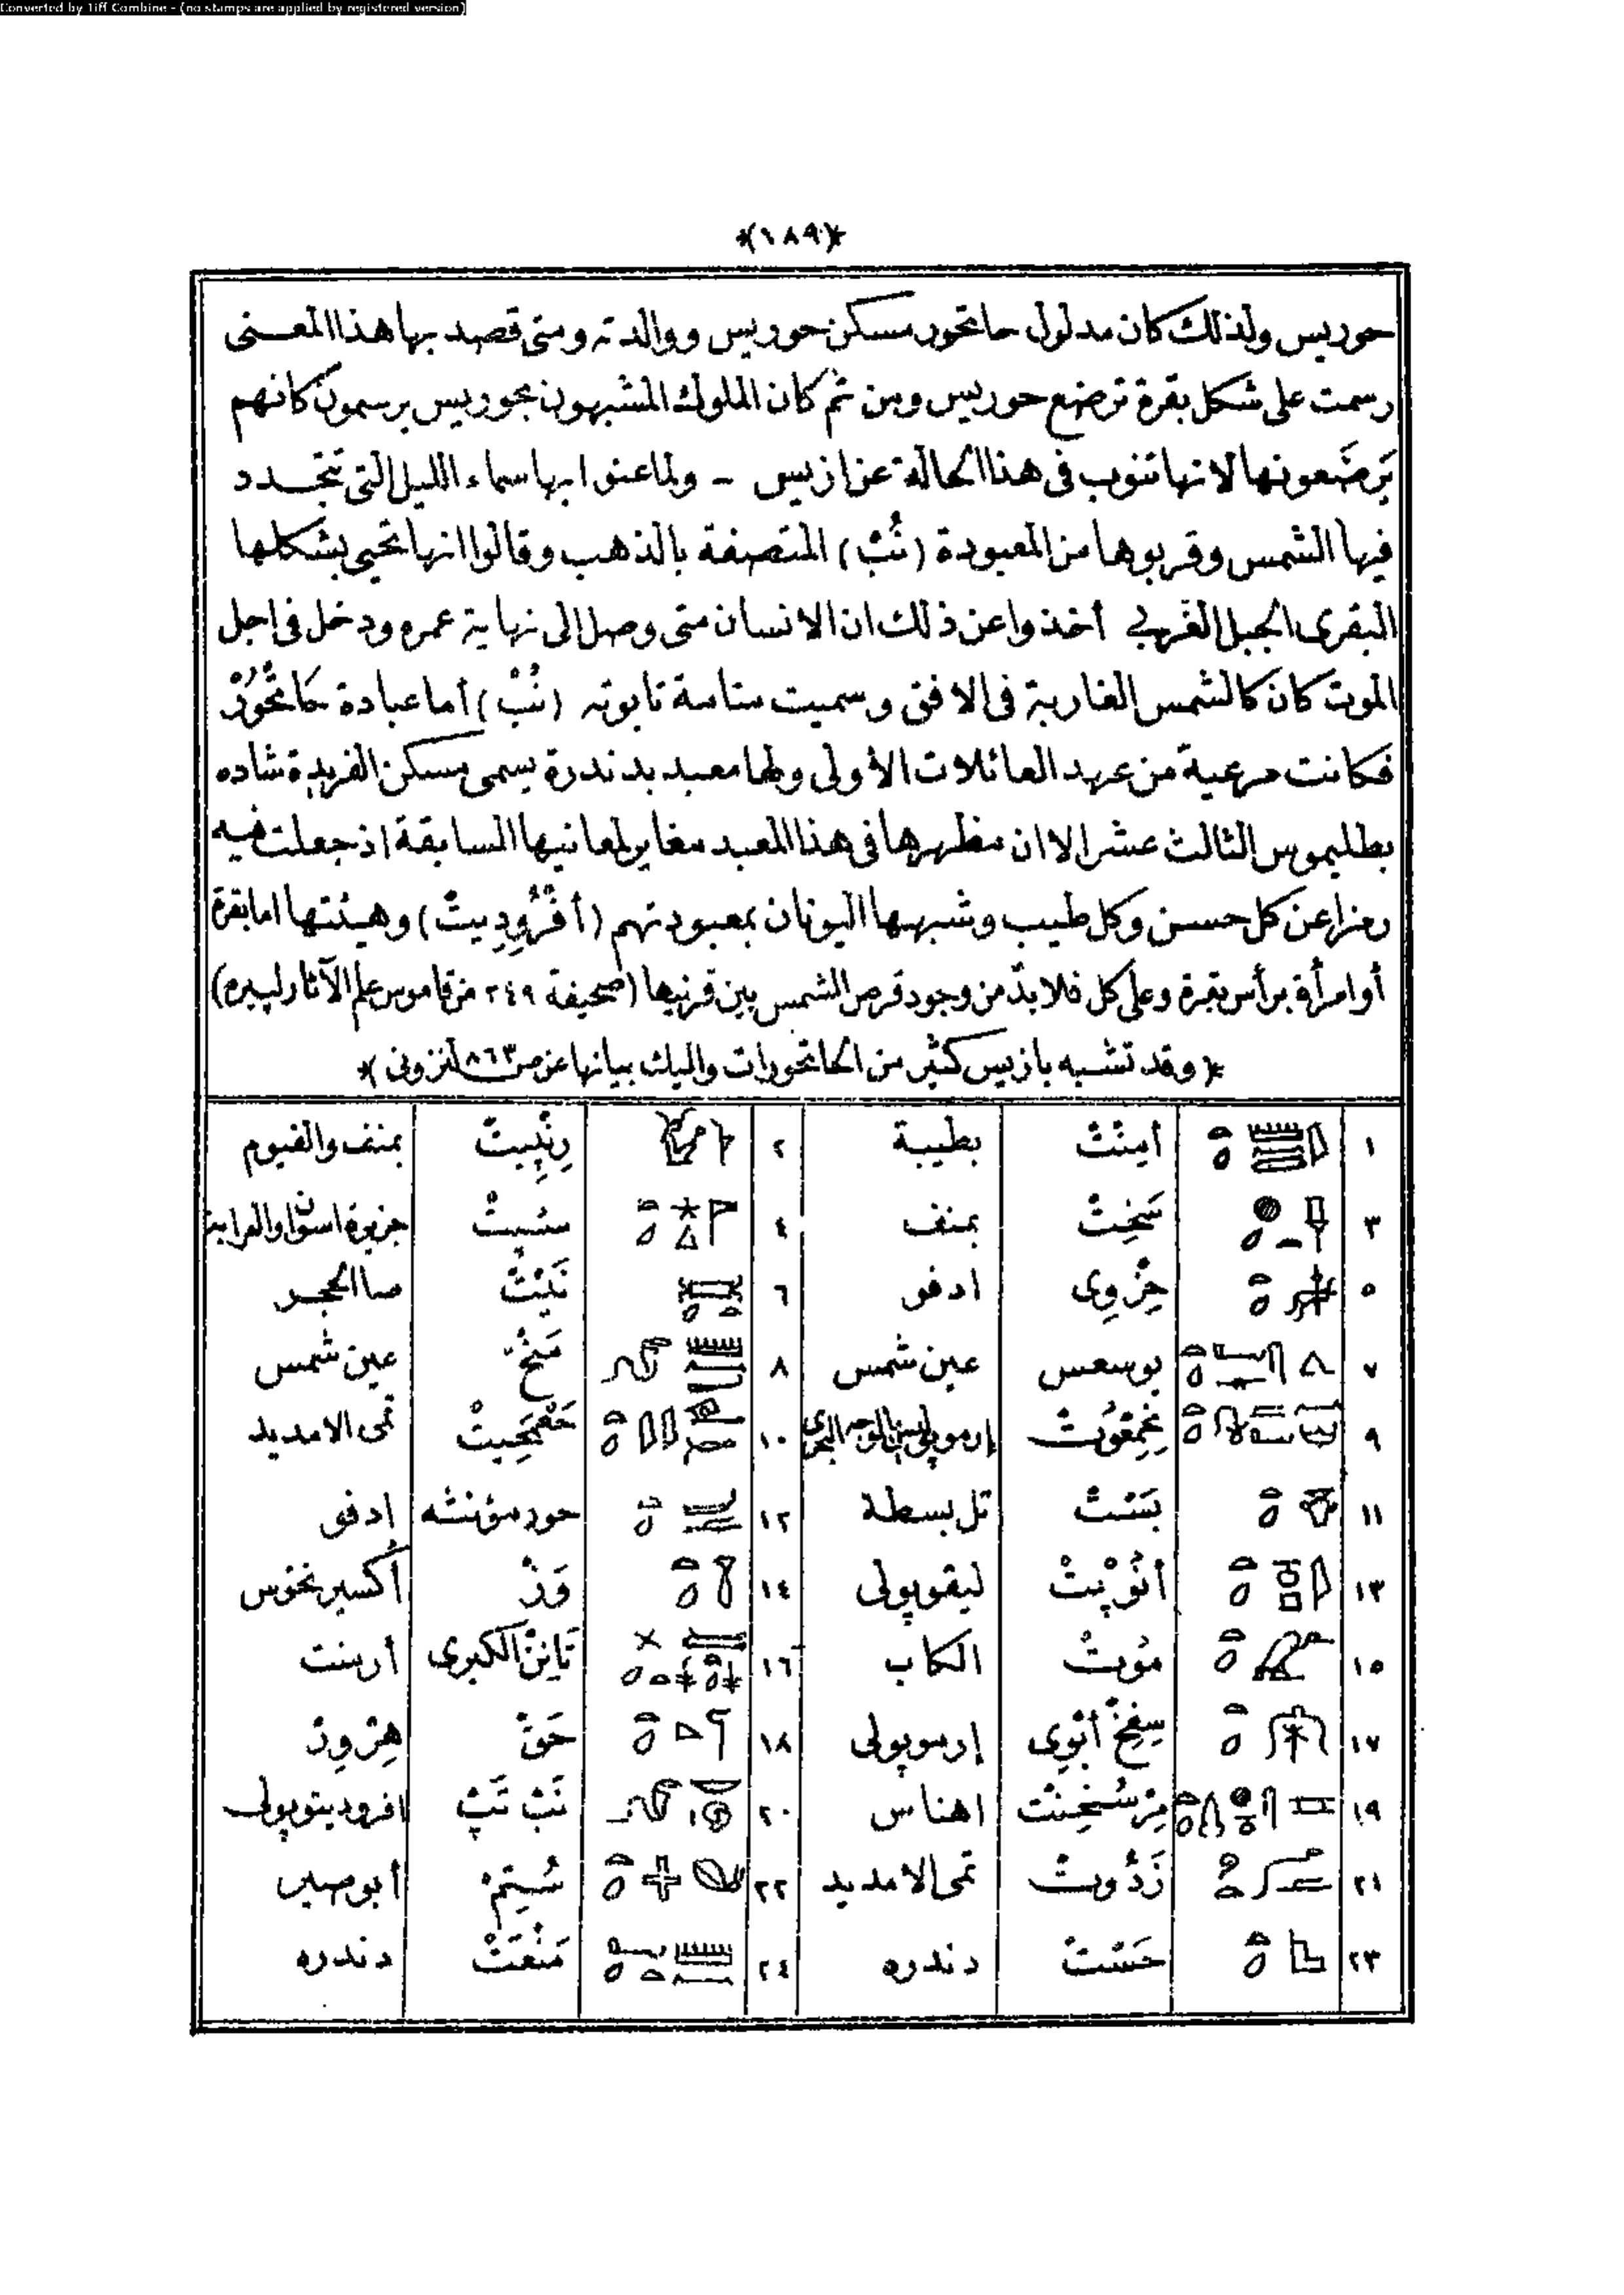 Converted by Tiff Combine - (no stamps are applied by registered version)
*(١٨٩)*
حوريس ولذلك كان مدلول حاتحور مسكن حوريس ووالدته ومتى قصد بها هذا المعنى
رسمت على شكل بقرة ترضع حوريس ومن ثم كان الملوك المشبهون بحوريس يرسمون كانهم
يَرضَعونها لانها تنوب فى هذا الحالة عن ازيس - ولما عنوا بها سماء الليل التى تتجدد
فيها الشمس وقربوها من المعبودة (نُبْ) المتصفة بالذهب وقالوا انها تحيى بشكلها
البقرى الجبل الغَربى أخذوا عن ذلك ان الانسان متى وصل الى نهاية عمره ودخل فى اجل
الموت كان كالشمس الغاربة فى الافق وسميت تابوته (نُبْ) أما عبادة حَاتْحُورْ
فكانت مرعية من عهد العائلات الأولى ولها معبد بدندرة يسمى مسكن الفريدة شاده
بطليموس الثالث عشر الا ان مظهرها فى هذا المعبد مغاير لمعانيها السابقة اذ جعلت فيه
رمزا عن كل حسن وكل طيب وشبهها اليونان بمعبودتهم (أفْرُودِيتْ) وهيئتها اما بقرة
أو امرأة برأس بقرة وعلى كل فلا بدّ من وجود قرص الشمس بين قرنيها (صحيفة ٢٤٩ من قاموس علم الآثار لپيره)
*(وقد تشبه بازيس كثير من الحاتحورات واليك بيانها عن ص ٨٦٣ لنزونى)*
١ أمِنْتْ بطيبة ٢ رِنْپِيتْ بمنف والفيوم
٣ سَخِتْ بمنف ٤ جزيرة اسوان والعرابة
٥ ادفو ٦ نَيْتْ صا الحجر
٧ يوسعس عين شمس ٨ عين شمس
٩ ١٠ تمى الامديد
١١ بَسْتْ تل بسطة ١٢ حور مؤنثه إدفو
١٣ أنُوْپتْ ليقوپولى ١٤ أكسيرنخوس
١٥ مُوتْ الكاب ١٦ الكبرى أرمنت
١٧ سِفِخْ أبْوِى إرموپولى ١٨ حَقْ
١٩ اهناس ٢٠ نَبْ تَپْ افروديتوپولى
٢١ تمى الامديد ٢٢ أبوصير
٢٣ حَسْتْ دندره ٢٤ مَنْعَتْ دندره